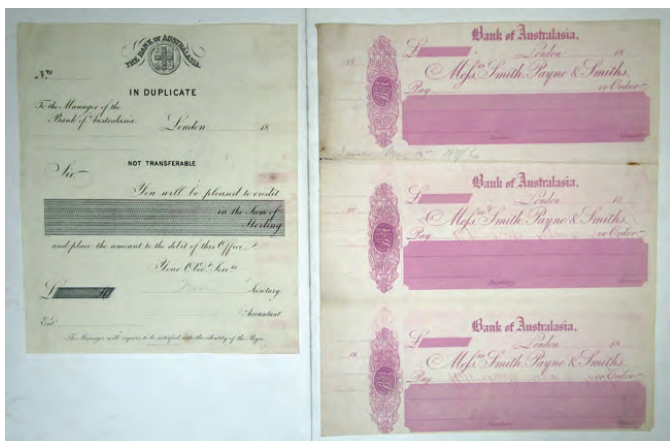 THE BANK OF AUSTRALASIA.
No.
IN DUPLICATE
To the Manager of the
Bank of Australasia
London 18
NOT TRANSFERABLE
Sir
You will be pleased to credit
in the Sum of
Sterling
and place the amount to the debit of this Office.
Your Obedt. Servt.
£
Secretary
Accountant
Entd.
The Manager will require to be satisfied with the identity of the Payee.
Bank of Australasia.
£
London 18
18
Messrs. Smith, Payne & Smiths,
Pay or Order
Secretary
Bank of Australasia.
£
London 18
18
Messrs. Smith, Payne & Smiths,
Pay or Order
Secretary
Bank of Australasia.
£
London 18
18
Messrs. Smith, Payne & Smiths,
Pay or Order
Secretary